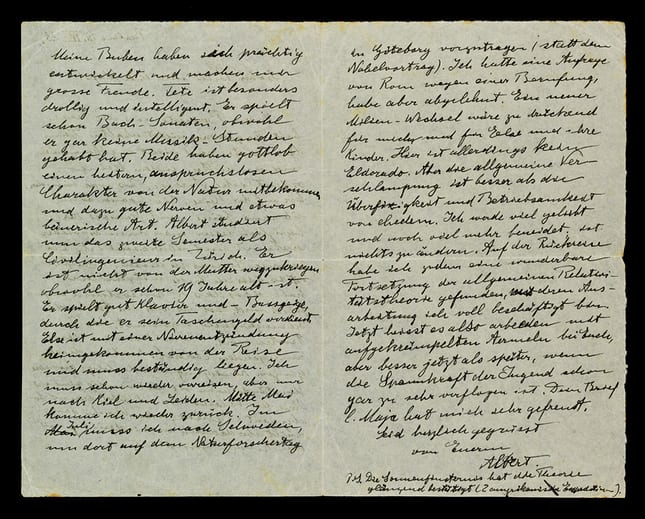 Meine Buben haben sich prächtig
entwickelt und machen mir
grosse Freude. Tete ist besonders
drollig und intelligent. Er spielt
schon Bach-Sonaten, obwohl
er gar keine Musik-Stunden
gehabt hat. Beide haben gottlob
einen heitern, anspruchslosen
Charakter von der Natur mitbekommen
und dazu gute Nerven und etwas
bäuerische Art. Albert studiert
nun das zweite Semester als
Civilingenieur in Zürich. Er
ist nicht von der Mutter wegzukriegen
obwohl er schon 19 Jahre alt ist.
Er spielt gut Klavier und - Bassgeige,
durch die er sein Taschengeld verdient
Else ist mit einer Nierenentzündung
heimgekommen von der Reise
und muss beständig liegen. Ich
muss schon wieder verreisen, aber nur
nach Kiel und Leiden. Mitte Mai
komme ich wieder zurück. Im
Juli muss ich nach Schweden,
um dort auf dem Naturforschertag
in Göteborg vorzutragen (statt dem
Nobelvortrag). Ich hatte eine Anfrage
von Rom wegen einer Berufung,
habe aber abgelehnt. Ein neuer
Milieu-Wechsel wäre zu drückend
für mich und für Else und ihre
Kinder. Hier ist allerdings kein
Eldorado. Aber die allgemeine Ver-
schlampung ist besser als die
und Betriebsamkeit
von ehedem. Ich werde viel geliebt
und noch viel mehr beneidet, ist
nichts zu ändern. Auf der Rückreise
habe ich zudem eine wunderbare
Fortsetzung der allgemeinen Relativi-
tätstheorie gefunden, mit deren Aus-
arbeitung ich voll beschäftigt bin.
Jetzt heisst es also arbeiten mit
aufgekrempelten Aermeln bei
aber besser jetzt als später, wenn
die Spannkraft der Jugend schon
gar zu sehr verflogen ist. Dein Brief
l. Maja hat mich sehr gefreut.
Seid herzlich gegrüsst
von Euerm
Albert.
P.S. Die Sonnenfinsternis hat die Theorie
glänzend bestätigt (2 amerikanische Expeditionen).